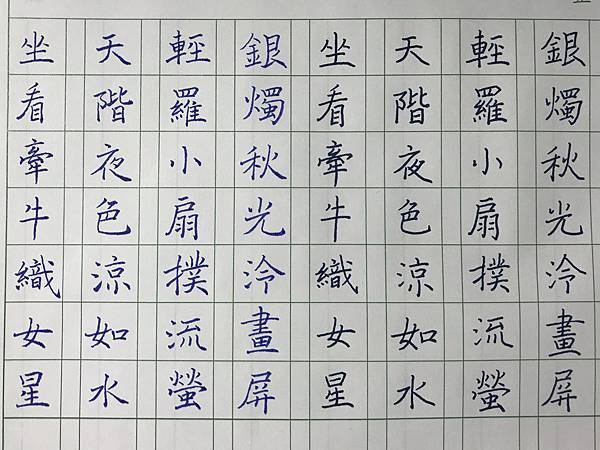 銀燭秋光泠畫屏
輕羅小扇撲流螢
天階夜色涼如水
坐看牽牛織女星
銀燭秋光泠畫屏
輕羅小扇撲流螢
天階夜色涼如水
坐看牽牛織女星